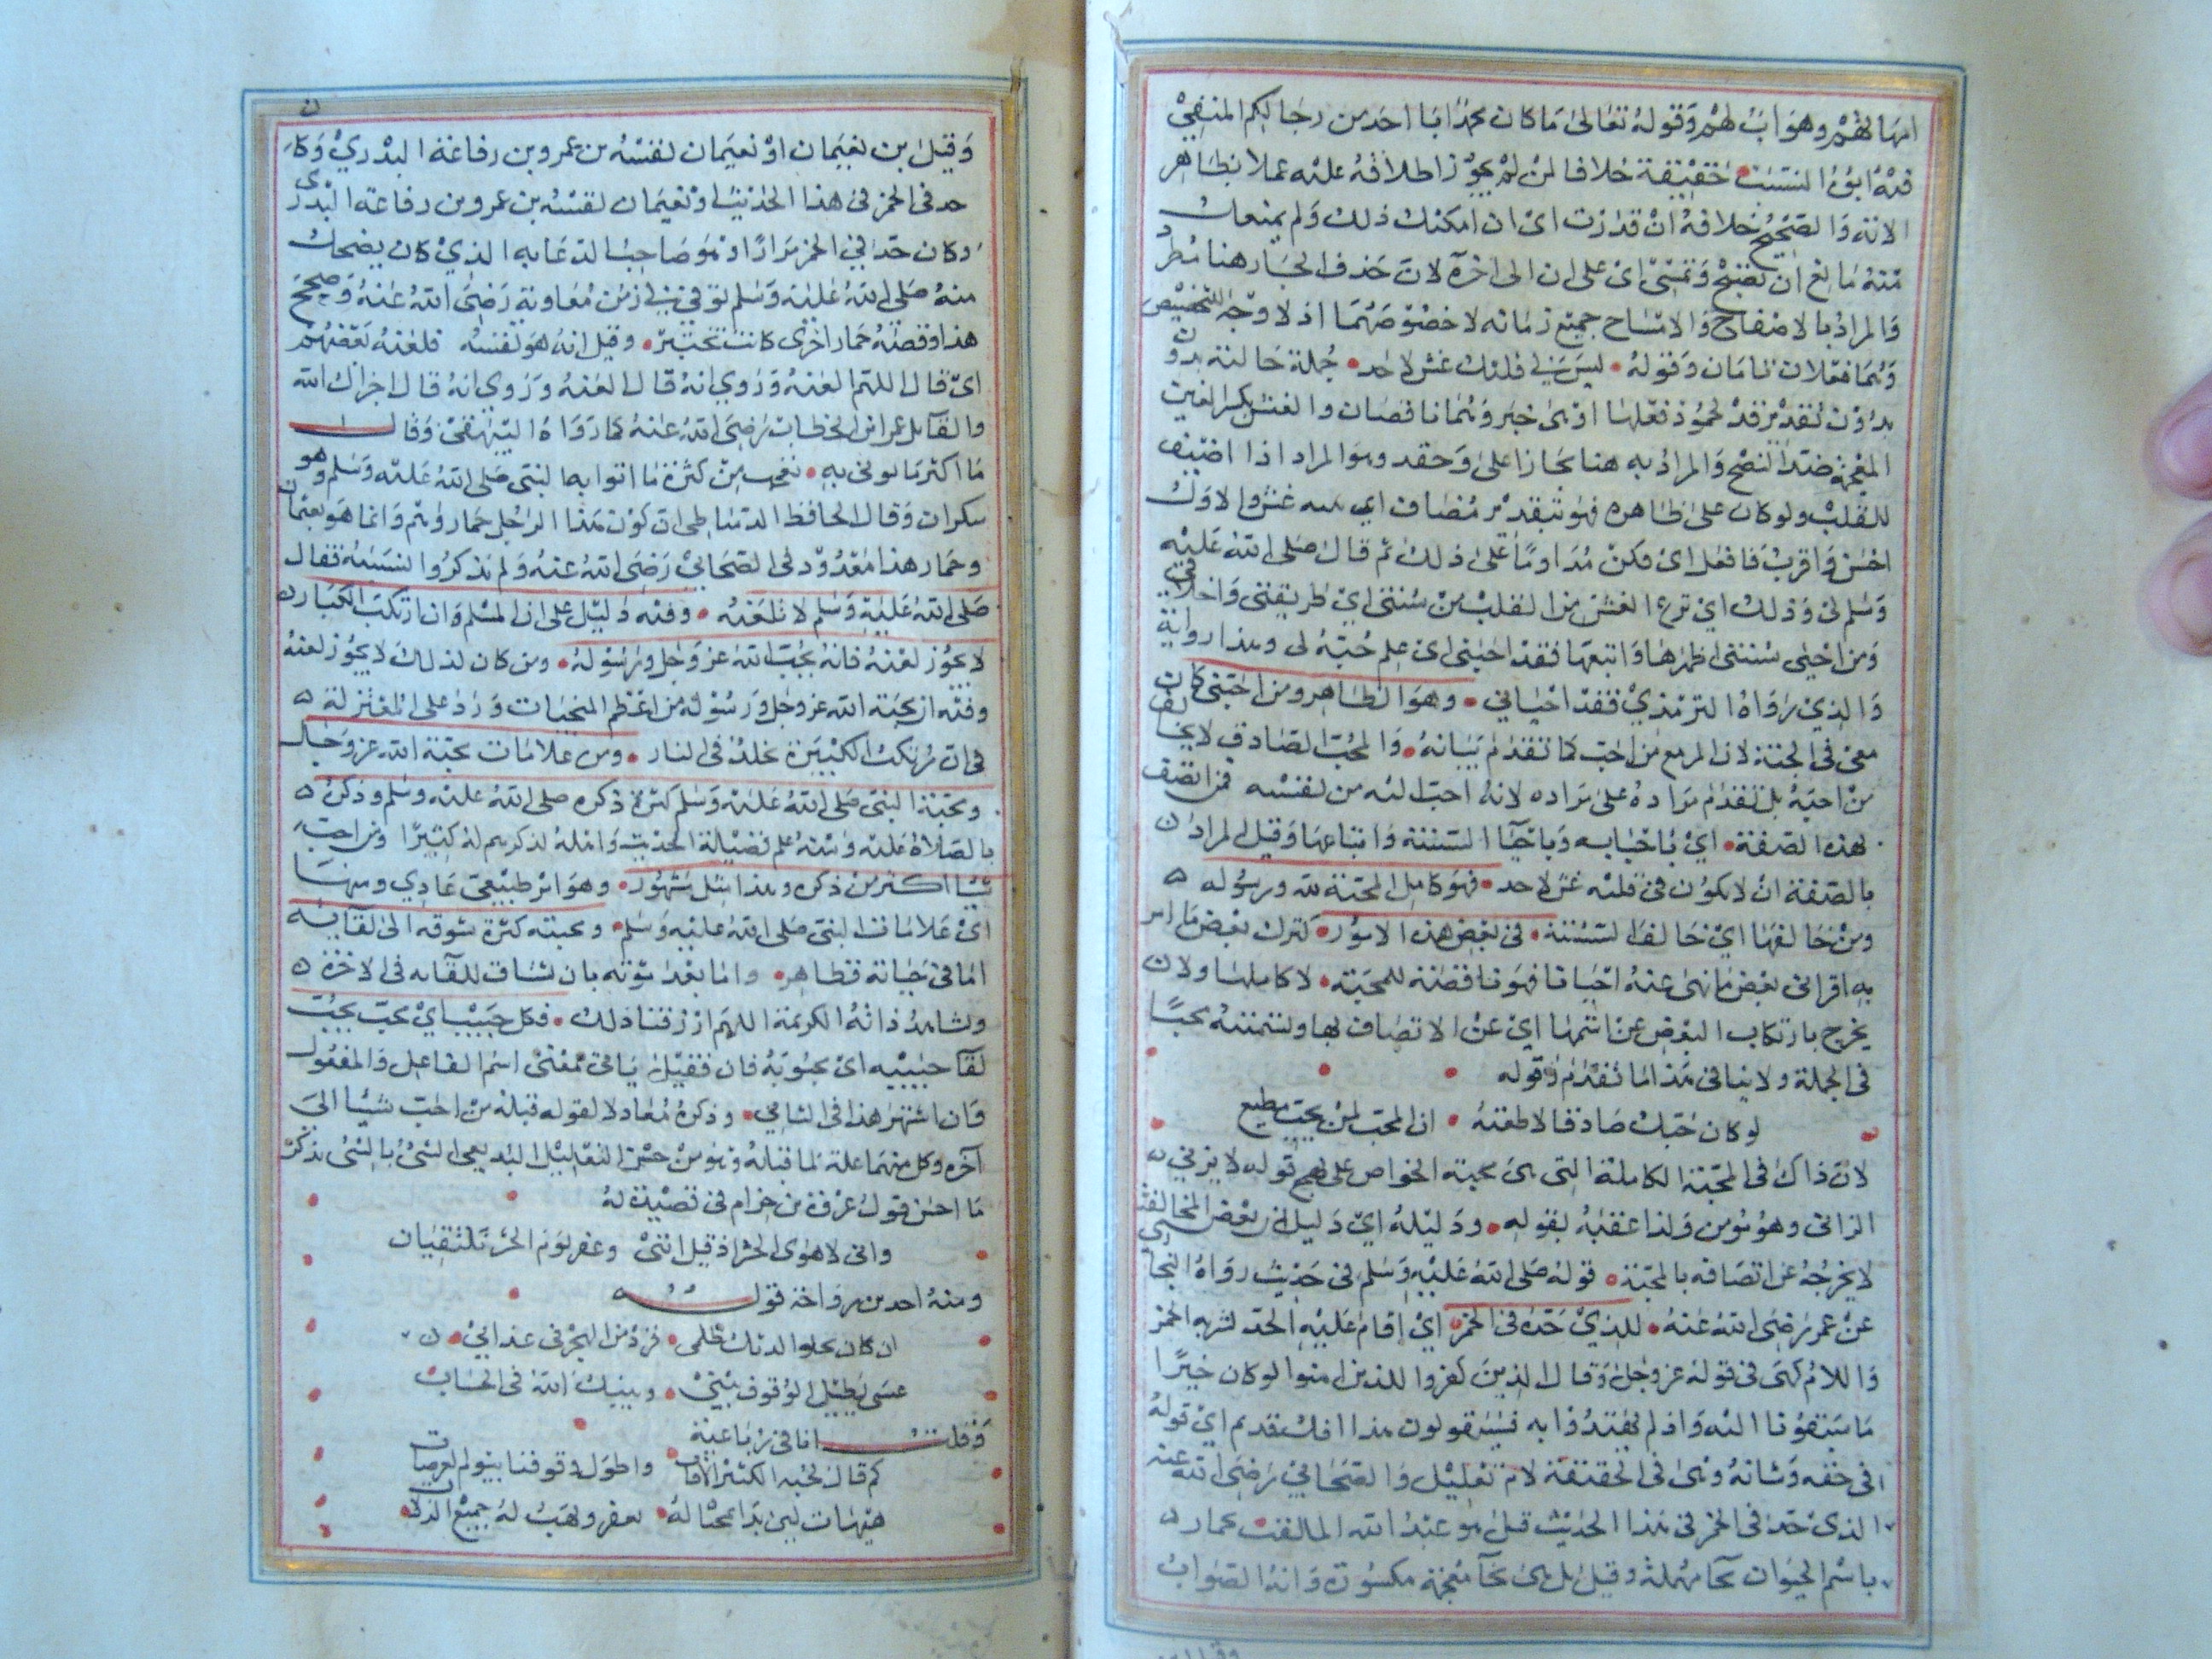 امهاتهم وهو اب لهم وقوله تعالى ما كان محمد ابا احد من رجالكم المنفي
فيه ابوة النسب حقيقة خلافا لمن لم يجوز اطلاقه عليه عملا بظاهر
الاية والصحيح خلافه ان قدرت اى ان امكنك ذلك ولم يمنعك
منه مانع ان تصبح وتمسى اى على ان الى اخره لان حذف الجار هنا مطرد
والمراد بالاصباح والامساء جميع زمانه لا خصوصهما اذ لا وجه للتخصيص
وهما فعلان تامان وقوله ليس في قلبك غش لاحد جملة حالية بدون
بدون تقدير قد لجمود فعلها او هى خبر وهما ناقصان والغش بكسر الغين
المعجمة ضد النصح والمراد به هنا مجازا على وحقد وهو المراد اذا اضيف
للقلب ولو كان على ظاهره فهو بتقدير مضاف اي غش والاول
احسن واقرب فافعل اى فكن مداوما على ذلك ثم قال صلى الله عليه
وسلم لى وذلك اي ترك الغش من القلب من سنتى اي طريقتى واخلاقي
ومن احيى سنتى اظهرها واتبعها فقد احبنى اى علم حبه لى وهذا رواية
والذي رواه الترمذي فقد احياني وهو الظاهر ومن احبنى كان
معى فى الجنة لان المرء مع من احب كما تقدم بيانه والمحب الصادق لا يخالف
من احبه بل يقدم مراده على مراده لانه احب اليه من نفسه فمن اتصف
بهذه الصفة اي باحبابه وباحيا السنة واتباعها وقيل المراد
بالصفة ان لا يكون فى قلبه غش لاحد فهو كامل المحبة لله ورسوله
ومن خالفها اي خالف السنة فى بعض هذه الامور كترك بعض ما امر
به او اتى بعض ما نهى عنه احيانا فهو ناقصة للمحبة لا كاملها ولا
يخرج بارتكاب البعض عن اسمها اي عن الاتصاف بها وتسميته محبا
فى الجملة ولا ينافى هذا ما تقدم وقوله
لو كان حبك صادقا لاطعته ان المحب لمن يحب مطيع
لان ذاك فى المحبة الكاملة التى هى محبة الخواص على نهج قوله لا يزني
الزانى وهو مومن ولذا عقبه بقوله ودليله اي دليل ان بعض المخالفة
لا يخرجه عن اتصافه بالمحبة قوله صلى الله عليه وسلم فى حديث رواه البخاري
عن عمر رضى الله عنه للذي حده فى الخمر اي اقام عليه الحد لشربه الخمر
واللام كهى فى قوله عز وجل وقال الذين كفروا للذين امنوا لو كان خيرا
ما سبقونا اليه واذ لم يهتدوا به فسيقولون هذا افك قديم اي قوله
فى حقه وشانه وهى فى الحقيقة لام تعليل والصحابي رضى الله عنه
الذى حد فى الخمر فى هذا الحديث قيل هو عبد الله الملقب بحمار
باسم الحيوان بحا مهملة وقيل بل هى بخا معجمة مكسورة وانه الصواب
وقيل بن نعيمان او نعيمان نفسه بن عمرو بن رفاعة البدري وكان
حد فى الخمر فى هذا الحديث او نعيمان نفسه بن عمرو بن رفاعة البدرى
وكان حد في الخمر مرارا وهو صاحب الدعابه الذي كان يضحك
منه صلى الله عليه وسلم توفى في زمن معاوية رضى الله عنه وصحح
هذا وقصة حمار اخرى كانت بخيبر وقيل انه هو نفسه فلعنه بعضهم
اى قال اللهم العنه وروي انه قال العنه وروي انه قال اخزاك الله
والقائل عمر ابن الخطاب رضى الله عنه كما رواه البيهقى وقال
ما اكثر ما يوتى به تعجب من كثرة ما اتوا به النبى صلى الله عليه وسلم وهو
سكران وقال الحافظ الدمياطى ان كون هذا الرجل حمار وهم وانما هو نعيمان
وحمار هذا معدود فى الصحابي رضى الله عنه ولم يذكروا نسبته فقال
صلى الله عليه وسلم لا تلعنه وفيه دليل على ان المسلم وان ارتكب الكبائر
لا يجوز لعنه فانه يحب الله عز وجل ورسوله ومن كان لذلك لا يجوز لعنه
وفيه ان محبة الله عز وجل ورسوله من اعظم المنجيات ورد على المعتزلة
فى ان مرتكب الكبيرة مخلد فى النار ومن علامات محبة الله عز وجل
ومحبة النبى صلى الله عليه وسلم كثرة ذكره صلى الله عليه وسلم وذكره
بالصلاة عليه ومنه علم فضيلة الحديث واهله لذكرهم له كثيرا ومن احب
شيا اكثر من ذكره وهذا مثل مشهور وهو امر طبيعي عادي ومنها
اى علامات النبى صلى الله عليه وسلم ومحبته كثرة شوقه الى لقائه
اما فى حياته فظاهر واما بعد موته بان يشتاق للقائه فى الاخرة
ويشاهد ذاته الكريمة اللهم ارزقنا ذلك فكل حبيب اي محب يحب
لقا حبيبه اى محبوبه فان فعيل ياتى بمعنى اسم الفاعل والمفعول
وان اشتهر هذا فى الثاني وذكره معادلا لقوله قبله من احب شيئا الى
اخره وكل منهما علة لما قبله وهو من حسن التعليل البديعى الشئ بالشئ يذكر
ما احسن قول عروة بن حزام فى قصيدة له
وانى لاهوى الحشر اذ قيل اننى وعفرا يوم الحشر نلتقيان
ومنه احد بن رواحة قوله
ان كان يحلوا لديك ظلمى فزد من الهجر فى عذابي
عسى يطيل الوقوف بينى وبينك الله فى الحساب
وقلت انا فى رباعية
كم قال محبه الكثير واطول وقوفنا بيوم العرصات
هيهات لمن بدا محياله يغفر ويهب له جميع الزلات